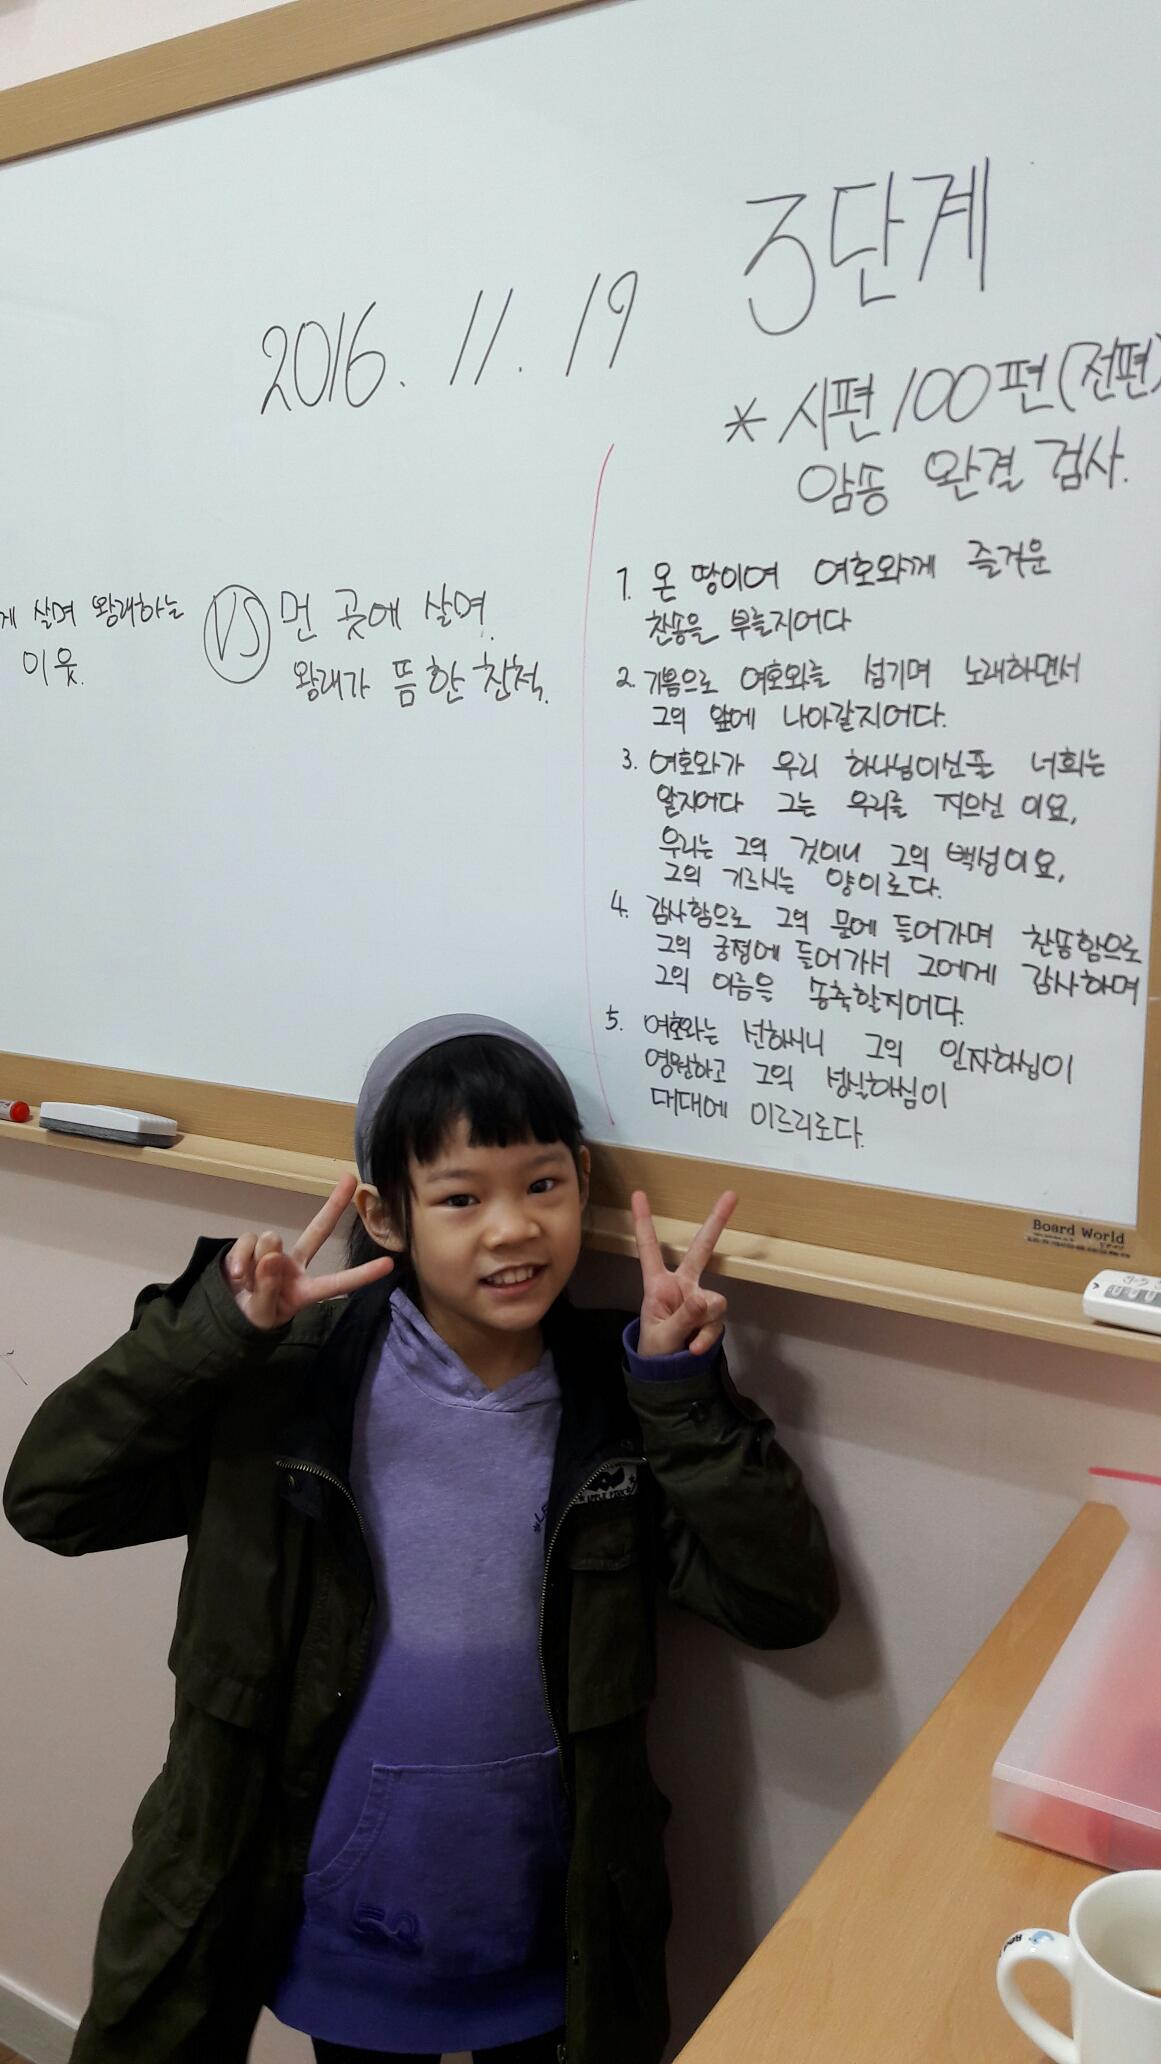 3단계
2016. 11. 19
* 시편 100편 (전편)
암송 완결 검사.
게 살며 왕래하는
이웃.
VS
먼 곳에 살며
왕래가 뜸한 친척.
1. 온 땅이여 여호와께 즐거운
찬송을 부를지어다
2. 기쁨으로 여호와를 섬기며 노래하면서
그의 앞에 나아갈지어다.
3. 여호와가 우리 하나님이신줄 너희는
알지어다 그는 우리를 지으신 이요,
우리는 그의 것이니 그의 백성이요,
그의 기르시는 양이로다.
4. 감사함으로 그의 문에 들어가며 찬송함으로
그의 궁정에 들어가서 그에게 감사하며
그의 이름을 송축할지어다.
5. 여호와는 선하시니 그의 인자하심이
영원하고 그의 성실하심이
대대에 이르리로다.
Board World